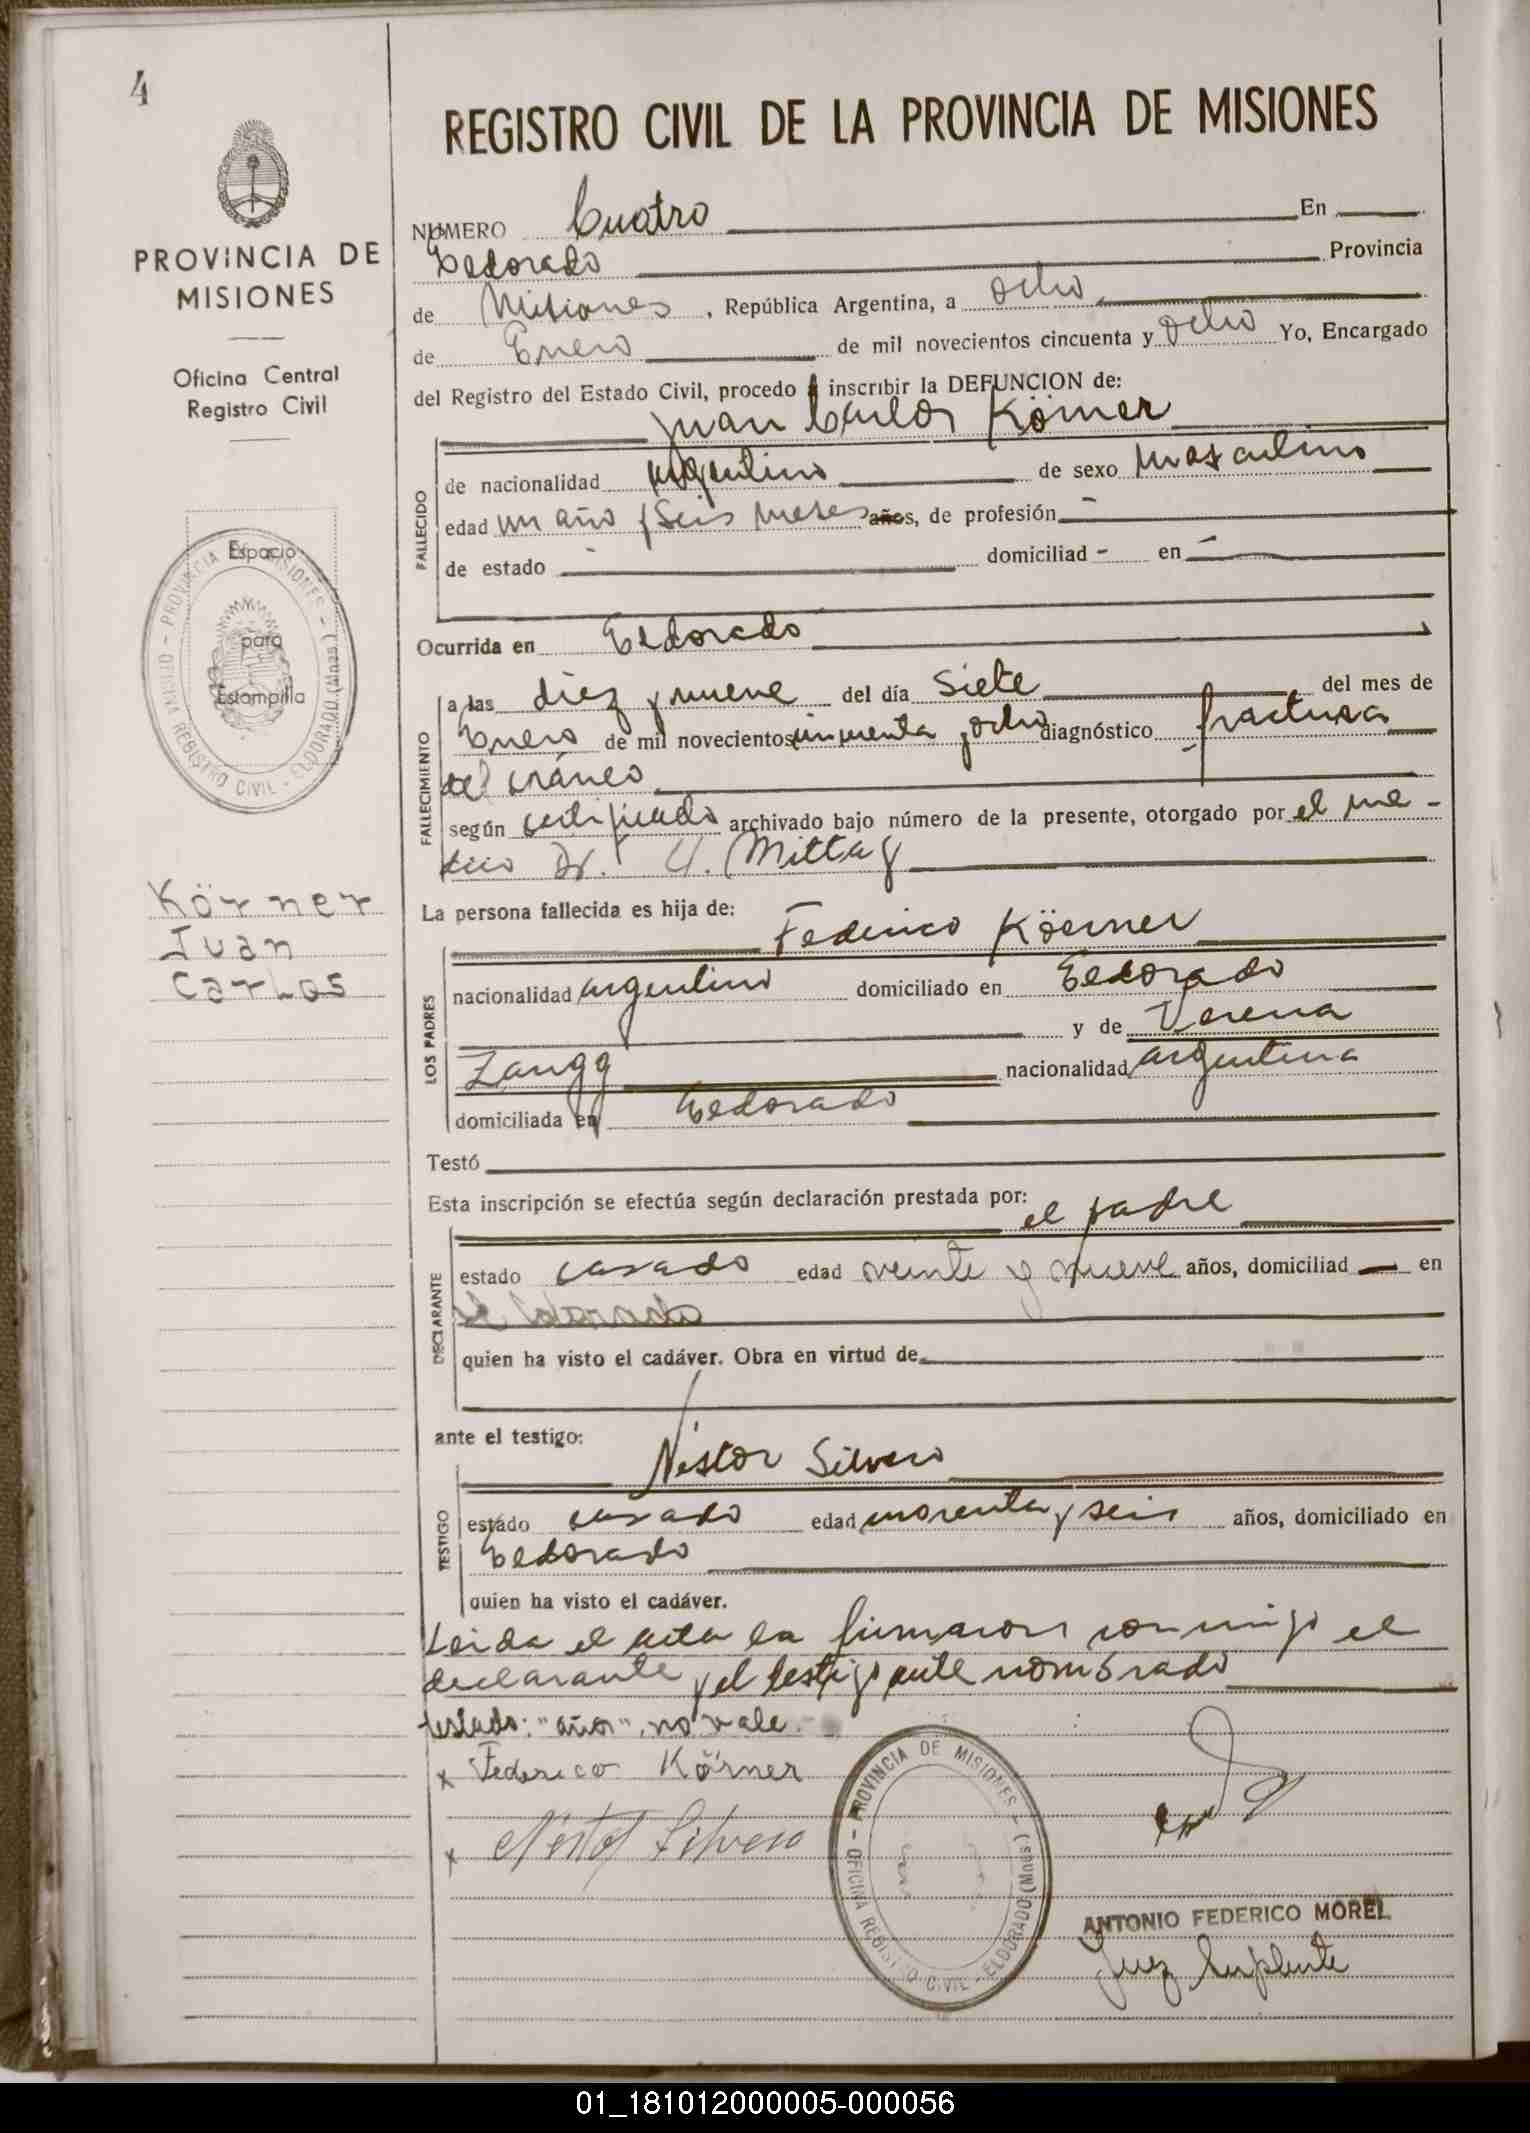 4
REGISTRO CIVIL DE LA PROVINCIA DE MISIONES
PROVINCIA DE
MISIONES
Oficina Central
Registro Civil
NUMERO Cuatro En
Eldorado Provincia
de Misiones, República Argentina, a ocho
de Enero de mil novecientos cincuenta y ocho Yo, Encargado
del Registro del Estado Civil, procedo a inscribir la DEFUNCION de:
Juan Carlos Körner
FALLECIDO
de nacionalidad argentino de sexo masculino
edad un año y seis meses años, de profesión -
de estado - domiciliad - en -
Espacio
para
Estampilla
OFICINA REGISTRO CIVIL - ELDORADO (Mnes.) - PROVINCIA DE MISIONES -
Ocurrida en Eldorado
FALLECIMIENTO
a las diez y nueve del día siete del mes de
Enero de mil novecientos cincuenta y ocho diagnóstico fractura
del cráneo
según certificado archivado bajo número de la presente, otorgado por el mé-
dico Dr. U. Mittag
Körner
Juan
Carlos
La persona fallecida es hija de:
Federico Köerner
LOS PADRES
nacionalidad argentino domiciliado en Eldorado
y de Verena
Zangg nacionalidad argentina
domiciliada en Eldorado
Testó
Esta inscripción se efectúa según declaración prestada por:
el padre
DECLARANTE
estado casado edad veinte y nueve años, domiciliad en
Eldorado
quien ha visto el cadáver. Obra en virtud de
ante el testigo:
Néstor Silvero
TESTIGO
estado casado edad cuarenta y seis años, domiciliado en
Eldorado
quien ha visto el cadáver.
Leida el acta la firmaron conmigo el
declarante y el testigo ante nombrado
testado: "años", no vale.
x Federico Körner
x Néstor Silvero
OFICINA REGISTRO CIVIL - ELDORADO (Mnes.) - PROVINCIA DE MISIONES -
ANTONIO FEDERICO MOREL
Juez Suplente
01_181012000005-000056